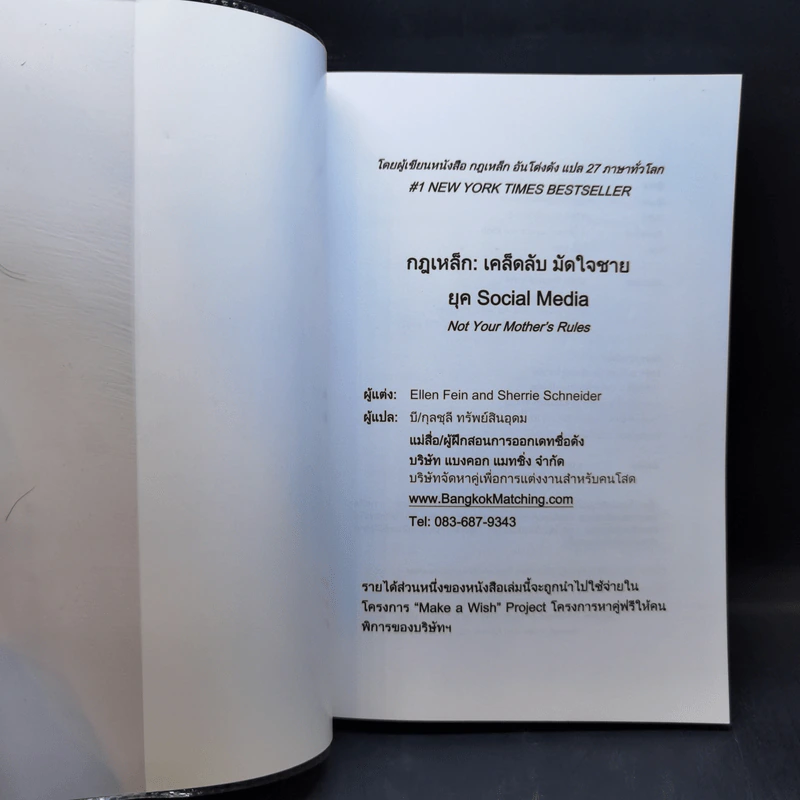 โดยผู้เขียนหนังสือ กฎเหล็ก อันโด่งดัง แปล 27 ภาษาทั่วโลก
#1 NEW YORK TIMES BESTSELLER
กฎเหล็ก: เคล็ดลับ มัดใจชาย
ยุค Social Media
Not Your Mother's Rules
ผู้แต่ง: Ellen Fein and Sherrie Schneider
ผู้แปล: บี/กุลชุลี ทรัพย์สินอุดม
แม่สื่อ/ผู้ฝึกสอนการออกเดทชื่อดัง
บริษัท แบงคอก แมทชิ่ง จำกัด
บริษัทจัดหาคู่เพื่อการแต่งงานสำหรับคนโสด
www.BangkokMatching.com
Tel: 083-687-9343
รายได้ส่วนหนึ่งของหนังสือเล่มนี้จะถูกนำไปใช้จ่ายใน
โครงการ "Make a Wish" Project โครงการหาคู่ฟรีให้คน
พิการของบริษัทฯ